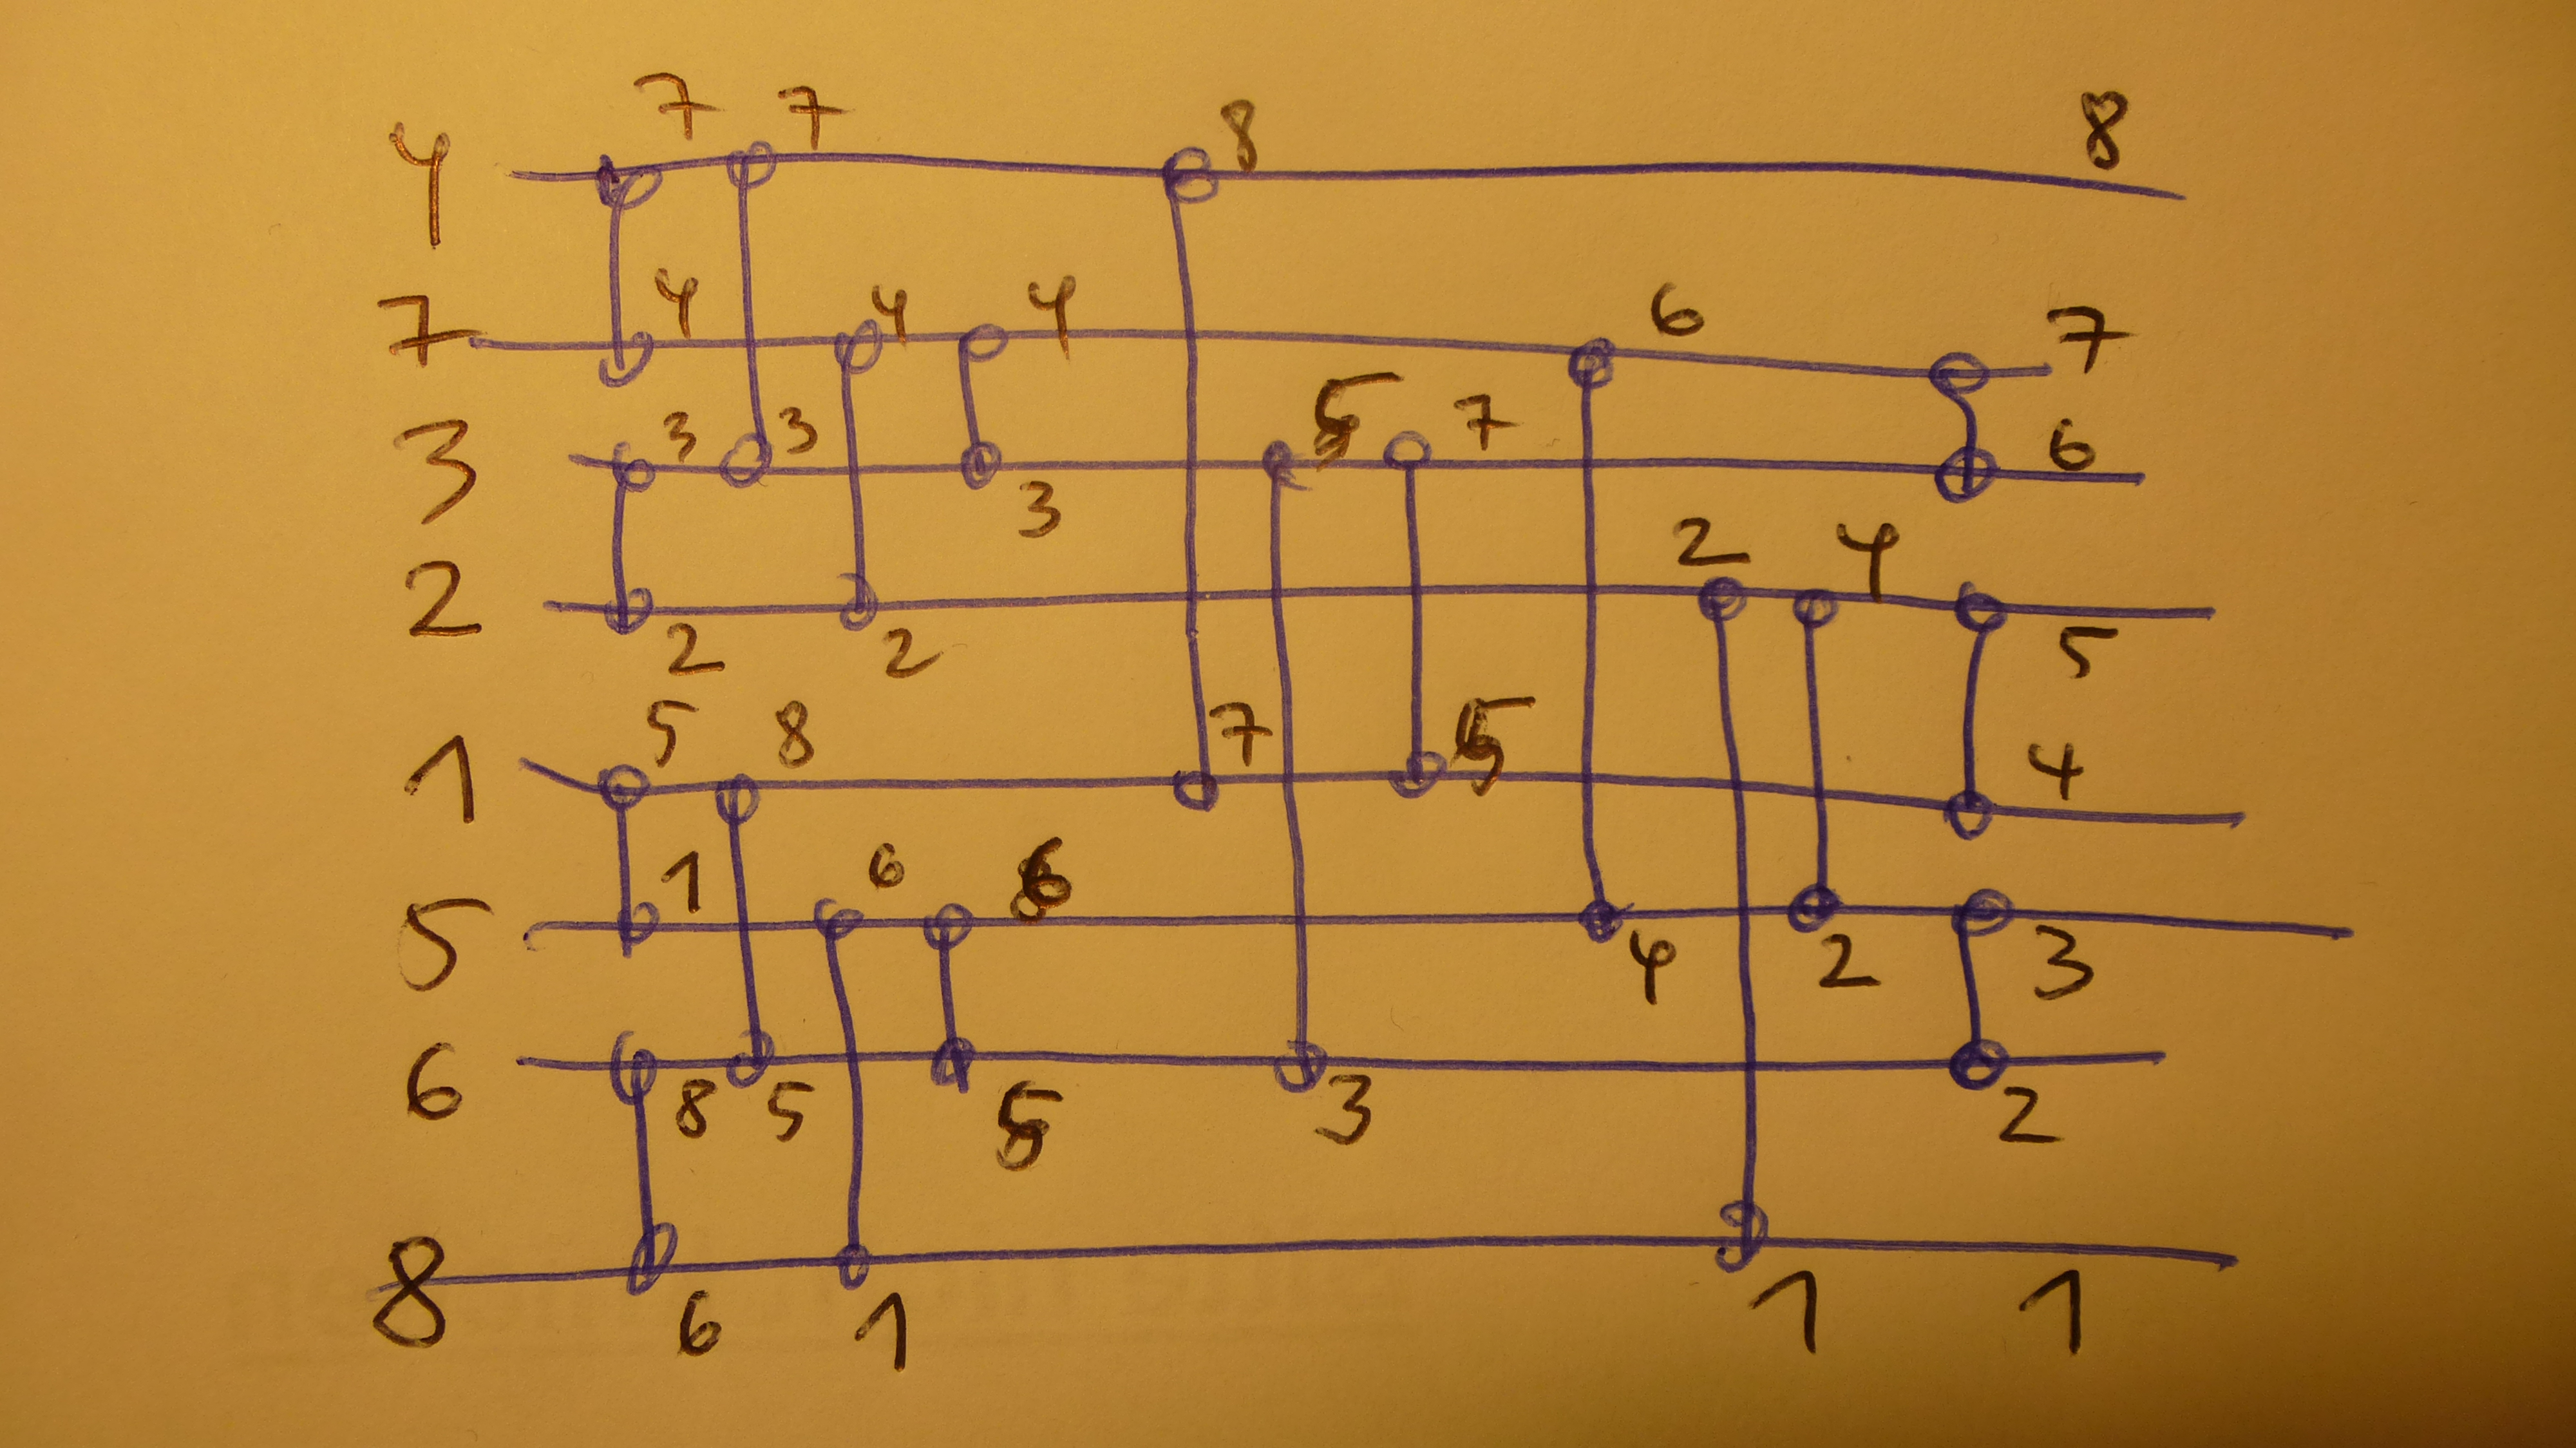 7 7 8 8
4
4 4 4 6 7
7
3 3 5 7 6
3
3 2 4
2
2 2 5
5 8 7 5 4
1
1 6 6
5 4 2 3
6 8 5 5 3 2
8 6 1 1 1